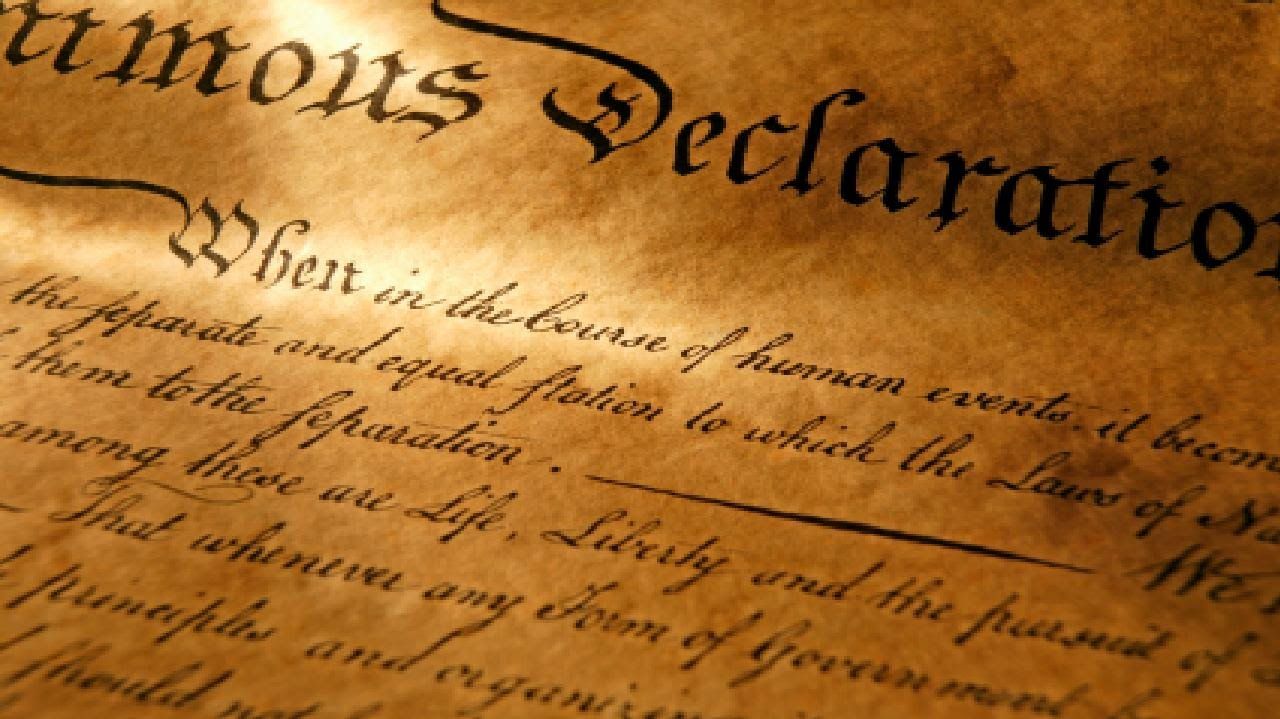 imous Declaration
When in the Course of human events, it becom
the separate and equal station to which the Laws of Na
them to the separation. We
among these are Life, Liberty and the pursuit of
That whenever any Form of Government
principles and organizin
should not